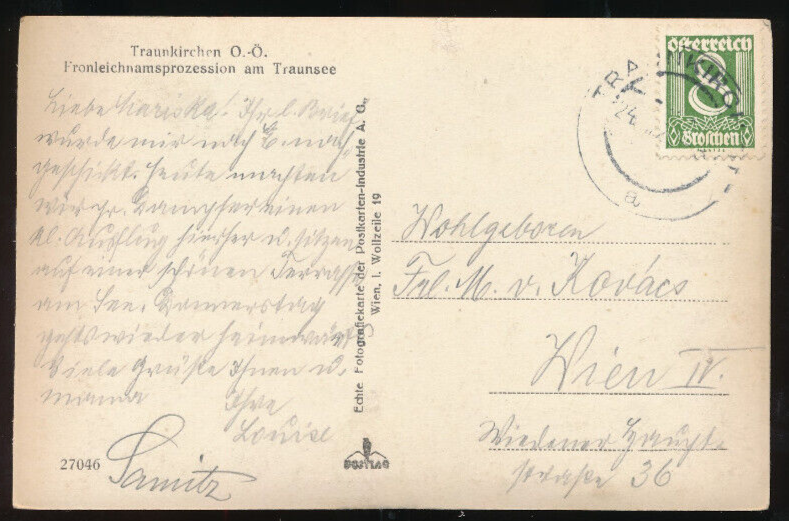 Traunkirchen O.-Ö.
Fronleichnamsprozession am Traunsee
Liebe Mariska! Ihr l. Brief
wurde mir nach
geschickt. Heute machten
wir pr. Dampfer einen
kl. Ausflug hierher u. sitzen
auf einer schönen Terrasse
am See. Donnerstag
gehts wieder heimwärts
Viele Grüße Ihnen u.
Mama Ihre
Louise
27046
Echte Fotografiekarte der Postkarten-Industrie A. G.,
Wien, I. Wollzeile 19
POSTIAG
österreich
8
Groschen
TRAUNKIRCHEN
24.
a
Wohlgeboren
Frl. M. v. Kovács
Wien IV.
Wiedener Haupt-
straße 36